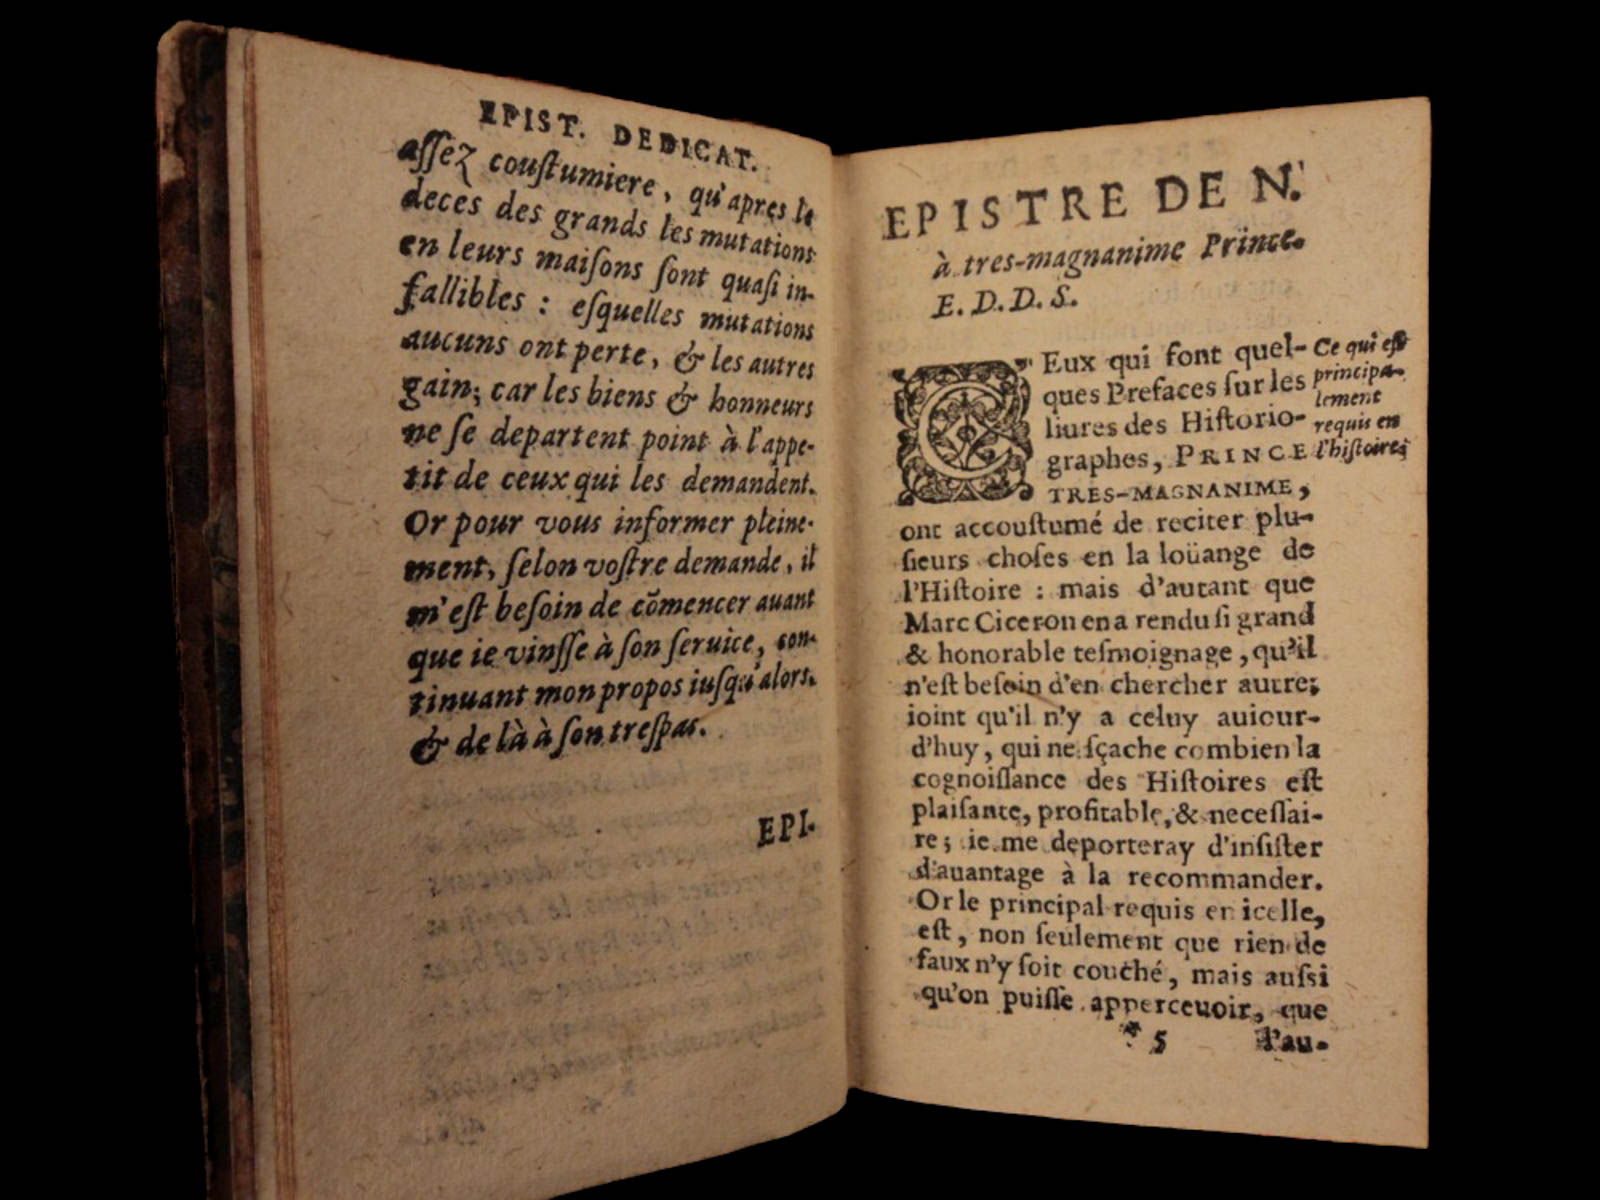 EPIST. DEDICAT.
aſſez couſtumiere, qu'apres le
deces des grands les mutations
en leurs maiſons ſont quaſi in-
fallibles : eſquelles mutations
aucuns ont perte, & les autres
gain; car les biens & honneurs
ne ſe departent point à l'appe-
tit de ceux qui les demandent.
Or pour vous informer pleine-
ment, ſelon voſtre demande, il
m'eſt beſoin de cõmencer auant
que ie vinſſe à ſon ſeruice, con-
tinuant mon propos iuſqu'alors.
& de là à ſon treſpas.
EPI-
EPISTRE DE N.
à tres-magnanime Prince.
E. D. D. S.
CEux qui font quel-
ques Prefaces ſur les
liures des Hiſtorio-
graphes, PRINCE
TRES-MAGNANIME,
ont accouſtumé de reciter plu-
ſieurs choſes en la loüange de
l'Hiſtoire : mais d'autant que
Marc Ciceron en a rendu ſi grand
& honorable teſmoignage, qu'il
n'eſt beſoin d'en chercher autre;
ioint qu'il n'y a celuy auiour-
d'huy, qui ne ſçache combien la
cognoiſſance des Hiſtoires eſt
plaiſante, profitable, & neceſſai-
re; ie me deporteray d'inſiſter
d'auantage à la recommander.
Or le principal requis en icelle,
eſt, non ſeulement que rien de
faux n'y ſoit couché, mais auſsi
qu'on puiſſe apperceuoir, que
* 5 l'au-
Ce qui eſt
principa-
lement
requis en
l'hiſtoire;